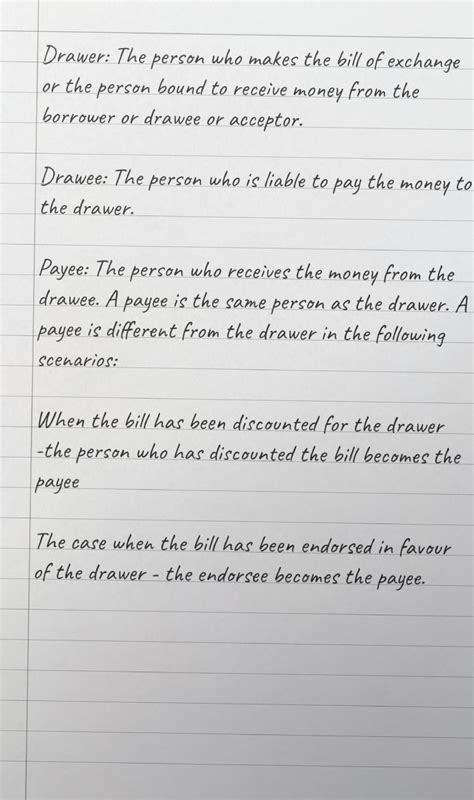 Drawer: The person who makes the bill of exchange
or the person bound to receive money from the
borrower or drawee or acceptor.
Drawee: The person who is liable to pay the money to
the drawer.
Payee: The person who receives the money from the
drawee. A payee is the same person as the drawer. A
payee is different from the drawer in the following
scenarios:
When the bill has been discounted for the drawer
-the person who has discounted the bill becomes the
payee
The case when the bill has been endorsed in favour
of the drawer - the endorsee becomes the payee.